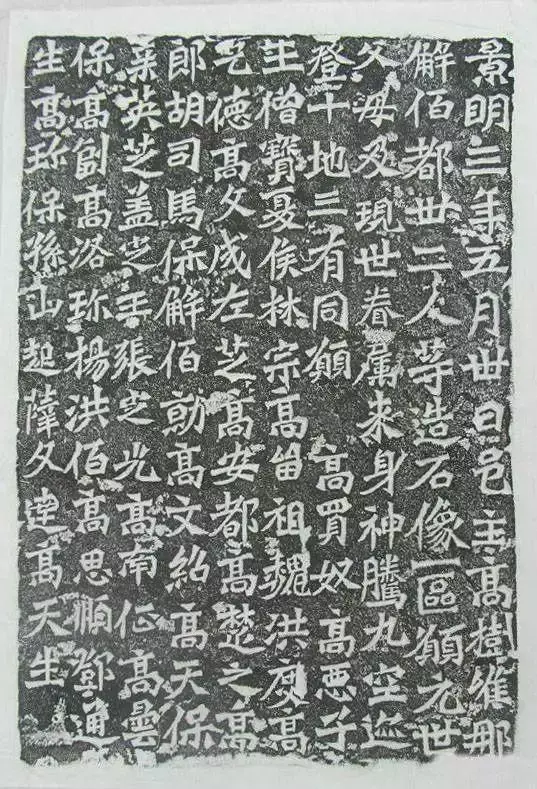 景明三年五月卅日邑主高樹維那
解佰都卅二人等造石像一區願元世
父母及現世眷屬来身神騰九空迹
登十地三有同願高買奴高悪子
王僧寶夏侯林宗高留祖魏洪度高
乞德高文成左芝高安都高楚之高
郎胡司馬保解佰勍高文紹高天保
蓋定王張定光高南征高曇
保高副高洛珎楊洪佰高思順鄧通
生高珎保孫山起薩文達高天生